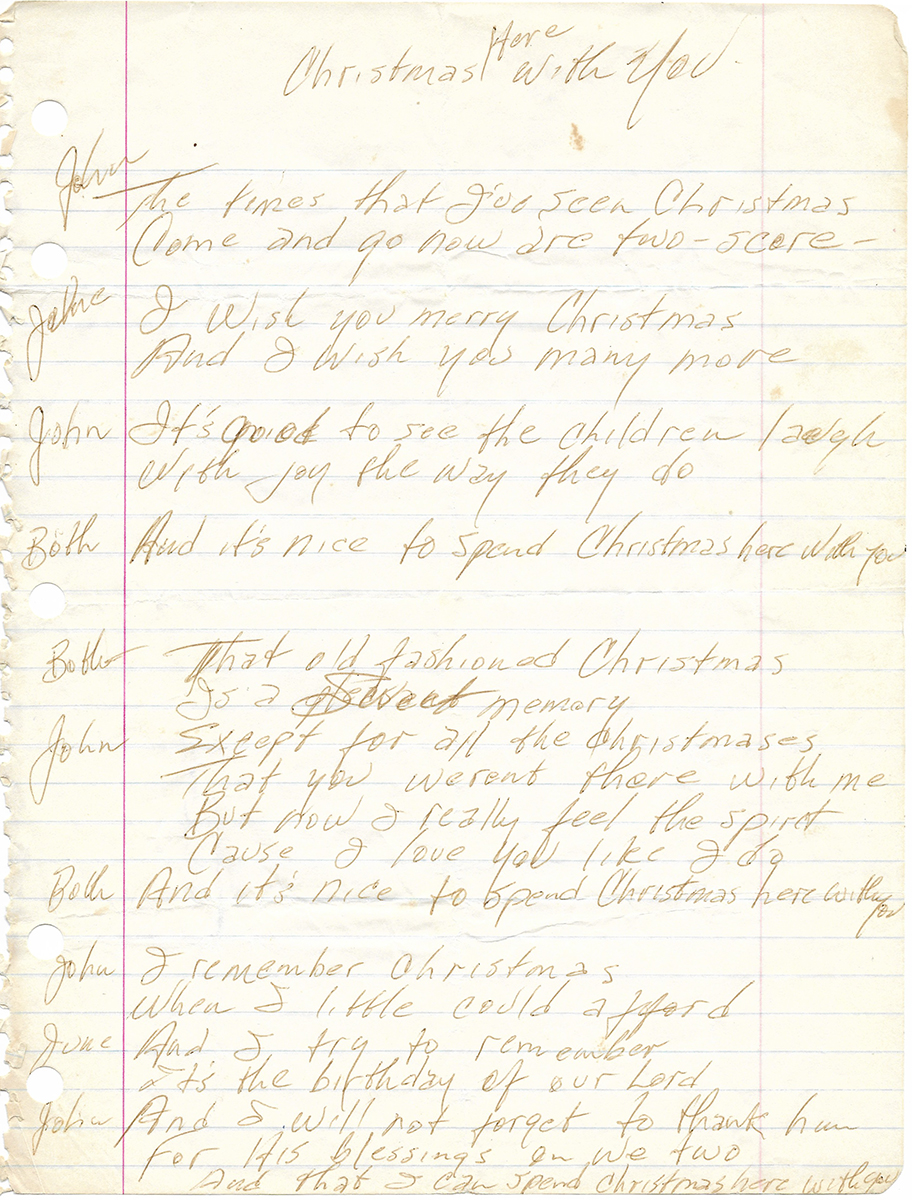 Christmas Here With You
John The times that I've seen Christmas
Come and go now are two-score-
June I wish you merry Christmas
And I wish you many more
John It's good to see the children laugh
With joy the way they do
Both And it's nice to spend Christmas here with you
Both That old fashioned Christmas
Is a sweet memory
John Except for all the Christmases
That you werent there with me
But now I really feel the spirit
Cause I love you like I do
Both And it's nice to spend Christmas here with you
John I remember Christmas
When I little could afford
June And I try to remember
It's the birthday of our Lord
John And I will not forget to thank him
For His blessings on we two
And that I can spend Christmas here with you